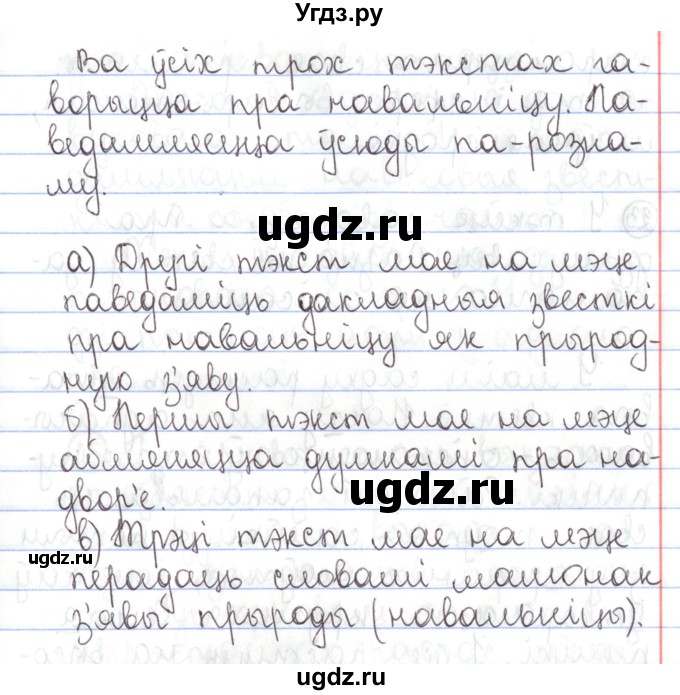 Угдз.ру
Ва ўсіх трох тэкстах га-
ворыцца пра навальніцу. Па-
ведамляецца усюды па-розна-
му.
ugdz.ru
а) Другі тэкст мае на мэце
паведаміць дакладныя звесткі
пра навальніцу як прырод-
ную з'яву.
б) Першы тэкст мае на мэце
абменяцца думкамі пра на-
двор'е.
ugdz.ru
ugdz.ru
в) Трэці тэкст мае на мэце
перадаць словамі малюнак
з'явы прыроды (навальніцы).
ugdz.ru
ugdz.ru